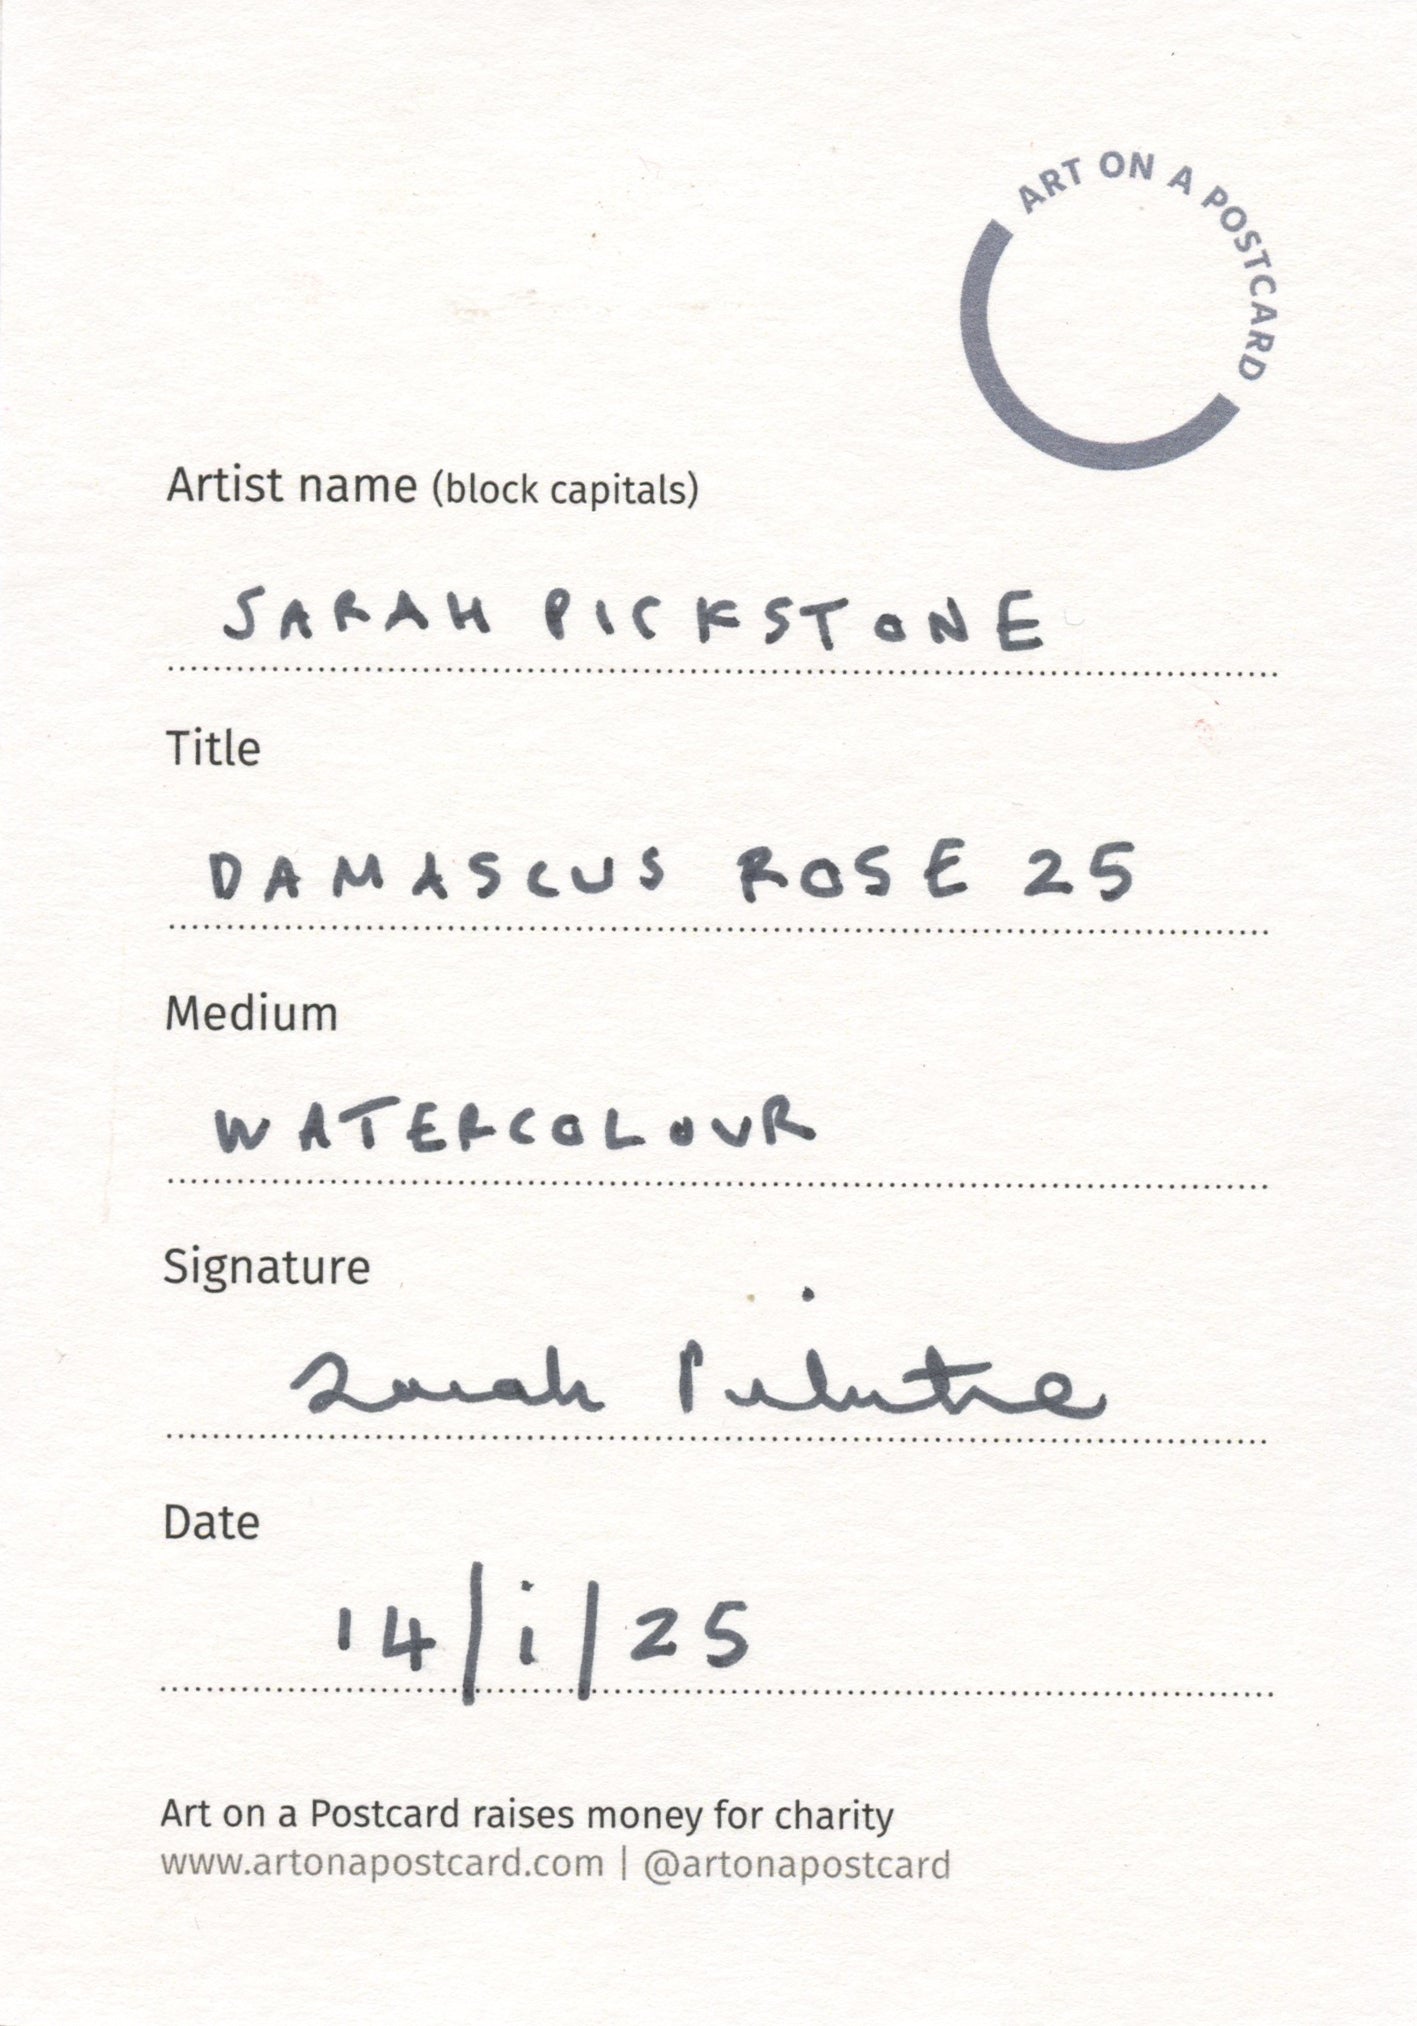 ART ON A POSTCARD
Artist name (block capitals)
SARAH PICKSTONE
Title
DAMASCUS ROSE 25
Medium
WATERCOLOUR
Signature
Sarah Pickstone
Date
14/i/25
Art on a Postcard raises money for charity
www.artonapostcard.com | @artonapostcard